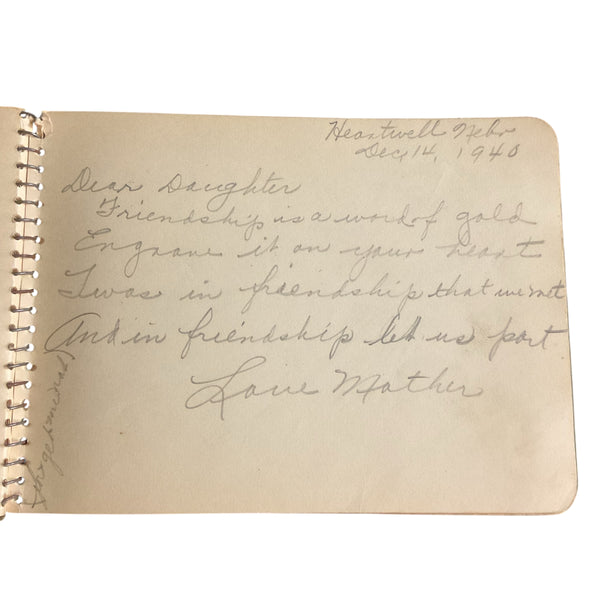 Heartwell Nebr
Dec, 14, 1940
Dear Daughter
Friendship is a word of gold
Engrave it on your heart
Twas in friendship that we met
And in friendship let us part
Love Mother